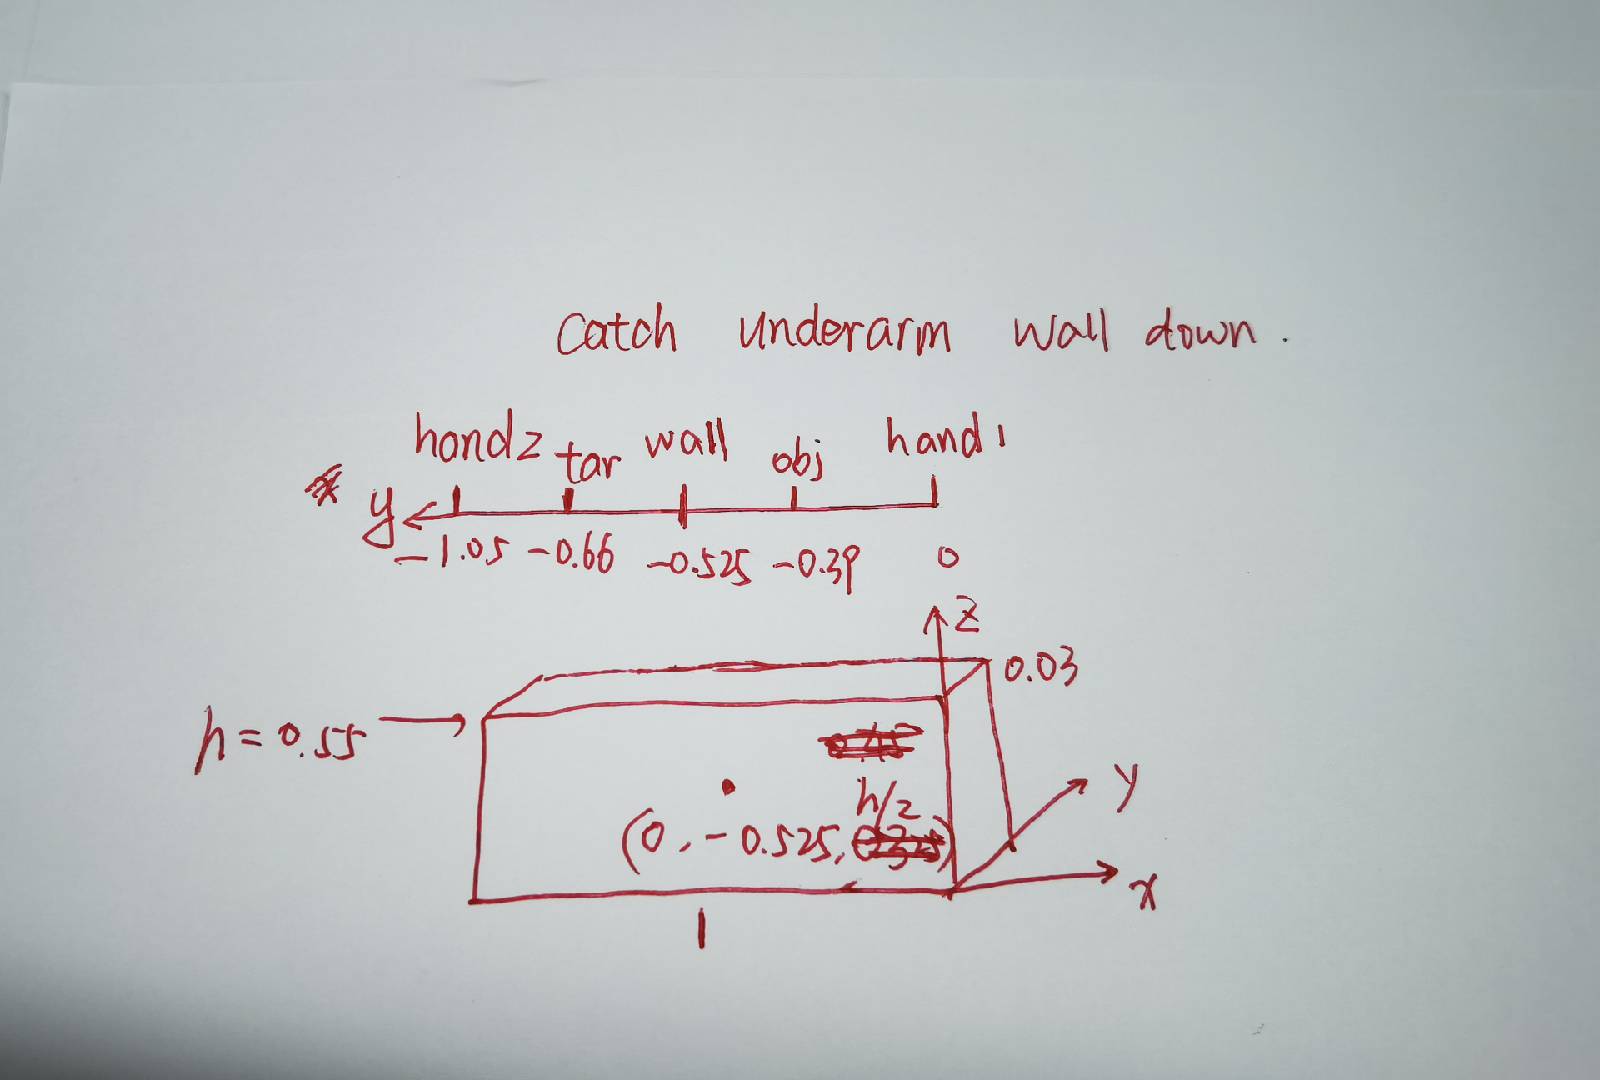 Catch underarm wall down.
hand2 tar wall obj hand1
y
-1.05 -0.66 -0.525 -0.39 0
z
0.03
h=0.55
h/2
y
(0, -0.525, )
x
1